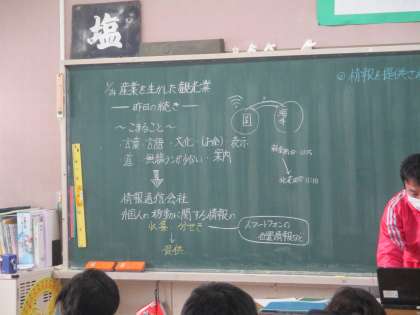 塩
産業を生かした観光業
昨日の続き
〜こまること〜
・言葉・言語・文化
表示
道・無線ランが少ない・案内
情報通信会社
個人の移動に関する情報の
収集 分せき
提供
スマートフォンの
位置情報など
国
◎情報を提供さ